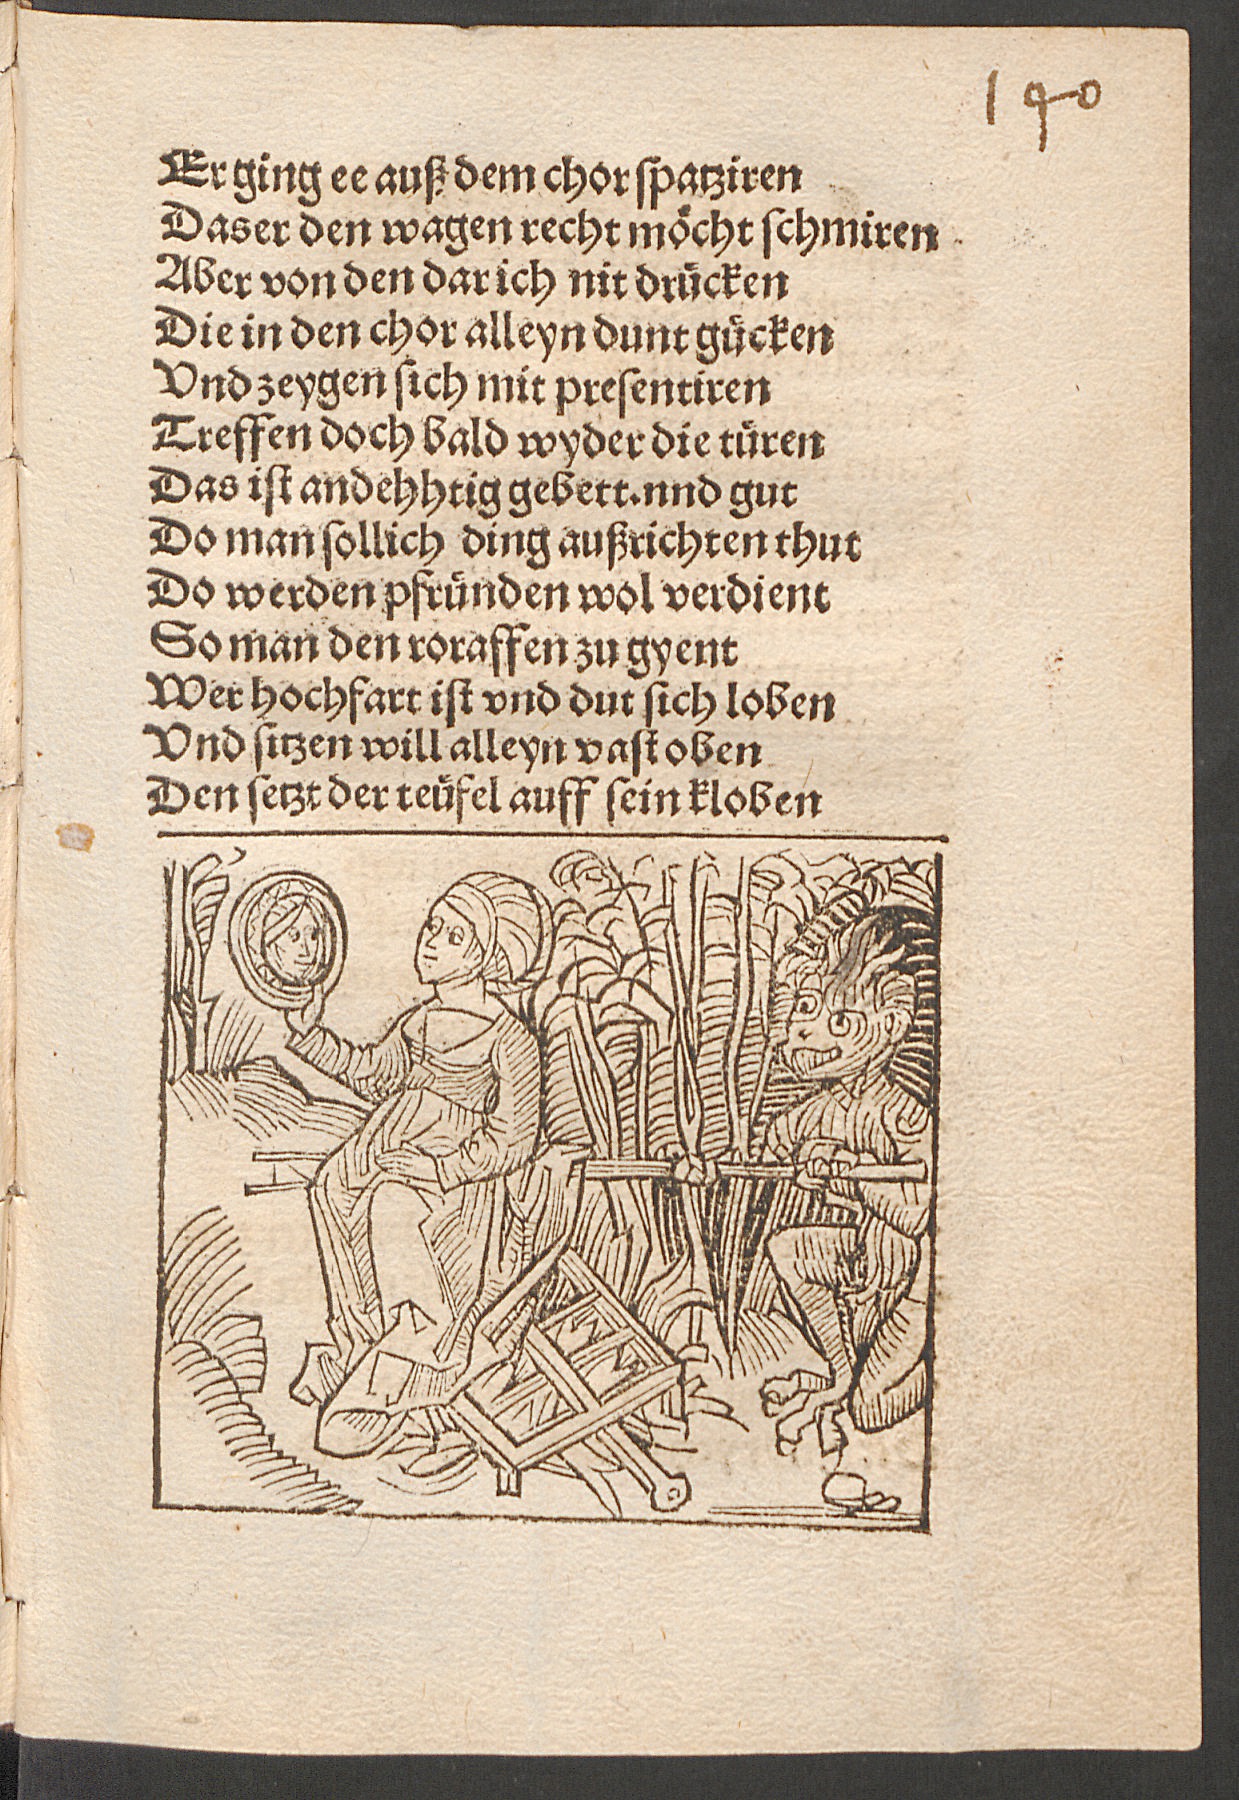 190
Er ging ee auß dem chor spatziren
Das er den wagen recht möcht schmiren
Aber von den dar ich nit drücken
Die in den chor alleyn dunt gücken
Vnd zeygen sich mit presentiren
Treffen doch bald wyder die türen
Das ist andehhtig gebett.nnd gut
Do man sollich ding außrichten thut
Do werden pfründen wol verdient
So man den roraffen zu gyent
Wer hochfart ist vnd dut sich loben
Vnd sitzen will alleyn vast oben
Den setzt der teüfel auff sein kloben